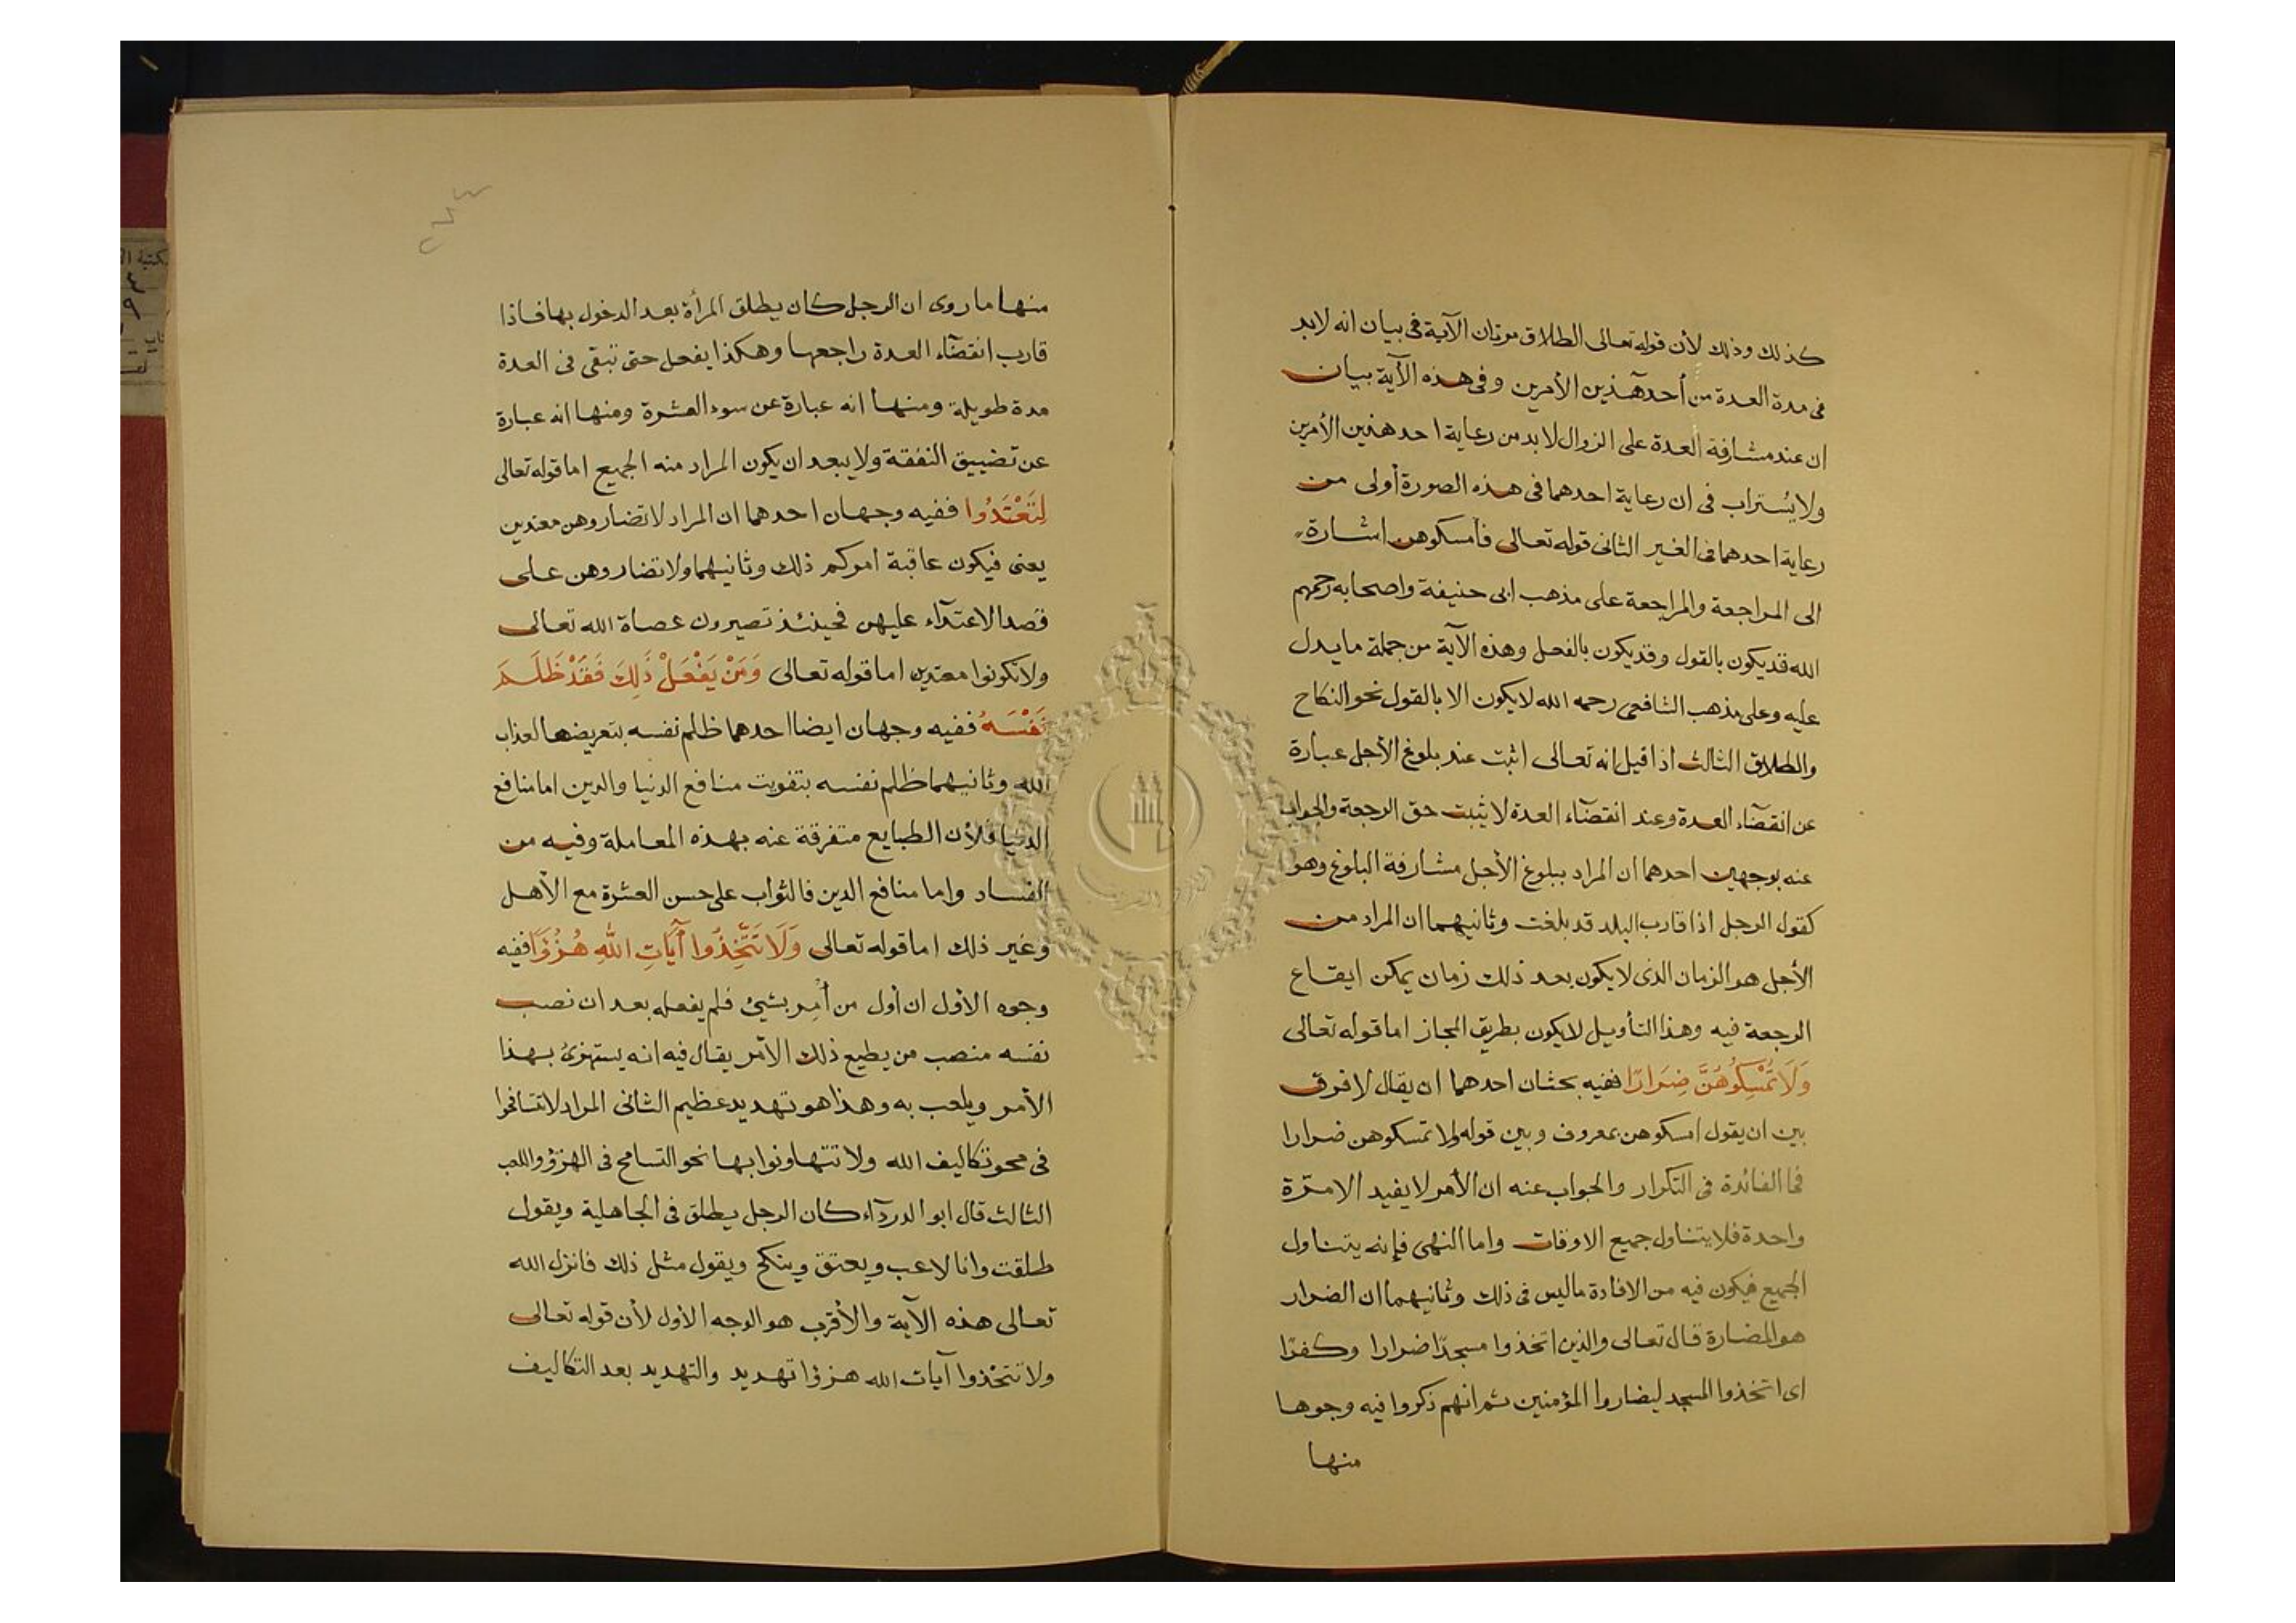 كذلك وذلك لأن قوله تعالى الطلاق مرتان الآية فى بيان انه لابد
فى مدة العدة من أحد هذين الأمرين وفى هذه الآية بيان
ان عند مشارفة العدة على الزوال لابد من رعاية احد هذين الأمرين
ولا يُستراب فى ان رعاية احدهما فى هذه الصورة أولى من
رعاية احدهما فى الغير الثانى قوله تعالى فأمسكوهن اشارة
الى المراجعة والمراجعة على مذهب ابى حنيفة واصحابه رحمهم
الله قد يكون بالقول وقد يكون بالفعل وهذه الآية من جملة ما يدل
عليه وعلى مذهب الشافعى رحمه الله لا يكون الا بالقول نحو النكاح
والطلاق الثالث اذا قيل انه تعالى اثبت عند بلوغ الأجل عبارة
عن انقضآء العدة وعند انقضآء العدة لا يثبت حق الرجعة والجواب
عنه بوجهين احدهما ان المراد ببلوغ الأجل مشارفة البلوغ وهو
كقول الرجل اذا قارب البلد قد بلغت وثانيهما ان المراد من
الأجل هو الزمان الذى لا يكون بعد ذلك زمان يمكن ايقاع
الرجعة فيه وهذا التأويل لا يكون بطريق المجاز اما قوله تعالى
وَلَا تُمْسِكُوهُنَّ ضِرَارًا ففيه بحثان احدهما ان يقال لا فرق
بين ان يقول امسكوهن بمعروف وبين قوله ولا تمسكوهن ضرارا
فما الفائدة فى التكرار والجواب عنه ان الأمر لا يفيد الا مرّة
واحدة فلا يتناول جميع الاوقات واما النهى فإنه يتناول
الجميع فيكون فيه من الافادة ما ليس فى ذلك وثانيهما ان الضرار
هو المضارة قال تعالى والذين اتخذوا مسجدًا ضرارا وكفرًا
اى اتخذوا المسجد ليضاروا المؤمنين ثم انهم ذكروا فيه وجوها
منها
٢٧٣
منها ما روى ان الرجل كان يطلق المرأة بعد الدخول بها فاذا
قارب انقضآء العدة راجعها وهكذا يفعل حتى تبقى فى العدة
مدة طويلة ومنها انه عبارة عن سوء العشرة ومنها انه عبارة
عن تضييق النفقة ولا يبعد ان يكون المراد منه الجميع اما قوله تعالى
لِتَعْتَدُوا ففيه وجهان احدهما ان المراد لا تضاروهن معتدين
يعنى فيكون عاقبة اموركم ذلك وثانيهما ولا تضاروهن على
قصد الاعتدآء عليهن فحينئذ تصيرون عصاة الله تعالى
ولا تكونوا معتدين اما قوله تعالى وَمَنْ يَفْعَلْ ذَلِكَ فَقَدْ ظَلَمَ
نَفْسَهُ ففيه وجهان ايضا احدهما ظلم نفسه بتعريضها لعذاب
الله وثانيهما ظلم نفسه بتفويت منافع الدنيا والدين اما منافع
الدنيا فلأن الطبايع متفرقة عنه بهذه المعاملة وفيه من
الفساد واما منافع الدين فالثواب على حسن العشرة مع الأهل
وغير ذلك اما قوله تعالى وَلَا تَتَّخِذُوا آيَاتِ اللّهِ هُزُوًا ففيه
وجوه الأول ان أول من أُمِر بشئ فلم يفعله بعد ان نصب
نفسه منصب من يطيع ذلك الأمر يقال فيه انه يستهزئ بهذا
الأمر ويلعب به وهذا هو تهديد عظيم الثانى المراد لا تتسامحوا
فى محو تكاليف الله ولا تتهاونوا بها نحو التسامح فى الهزؤ واللعب
الثالث قال ابو الدردآء كان الرجل يطلق فى الجاهلية ويقول
طلقت وانا لاعب ويعتق وينكح ويقول مثل ذلك فانزل الله
تعالى هذه الآية والأقرب هو الوجه الاول لأن قوله تعالى
ولا تتخذوا آيات الله هزؤا تهديد والتهديد بعد التكاليف